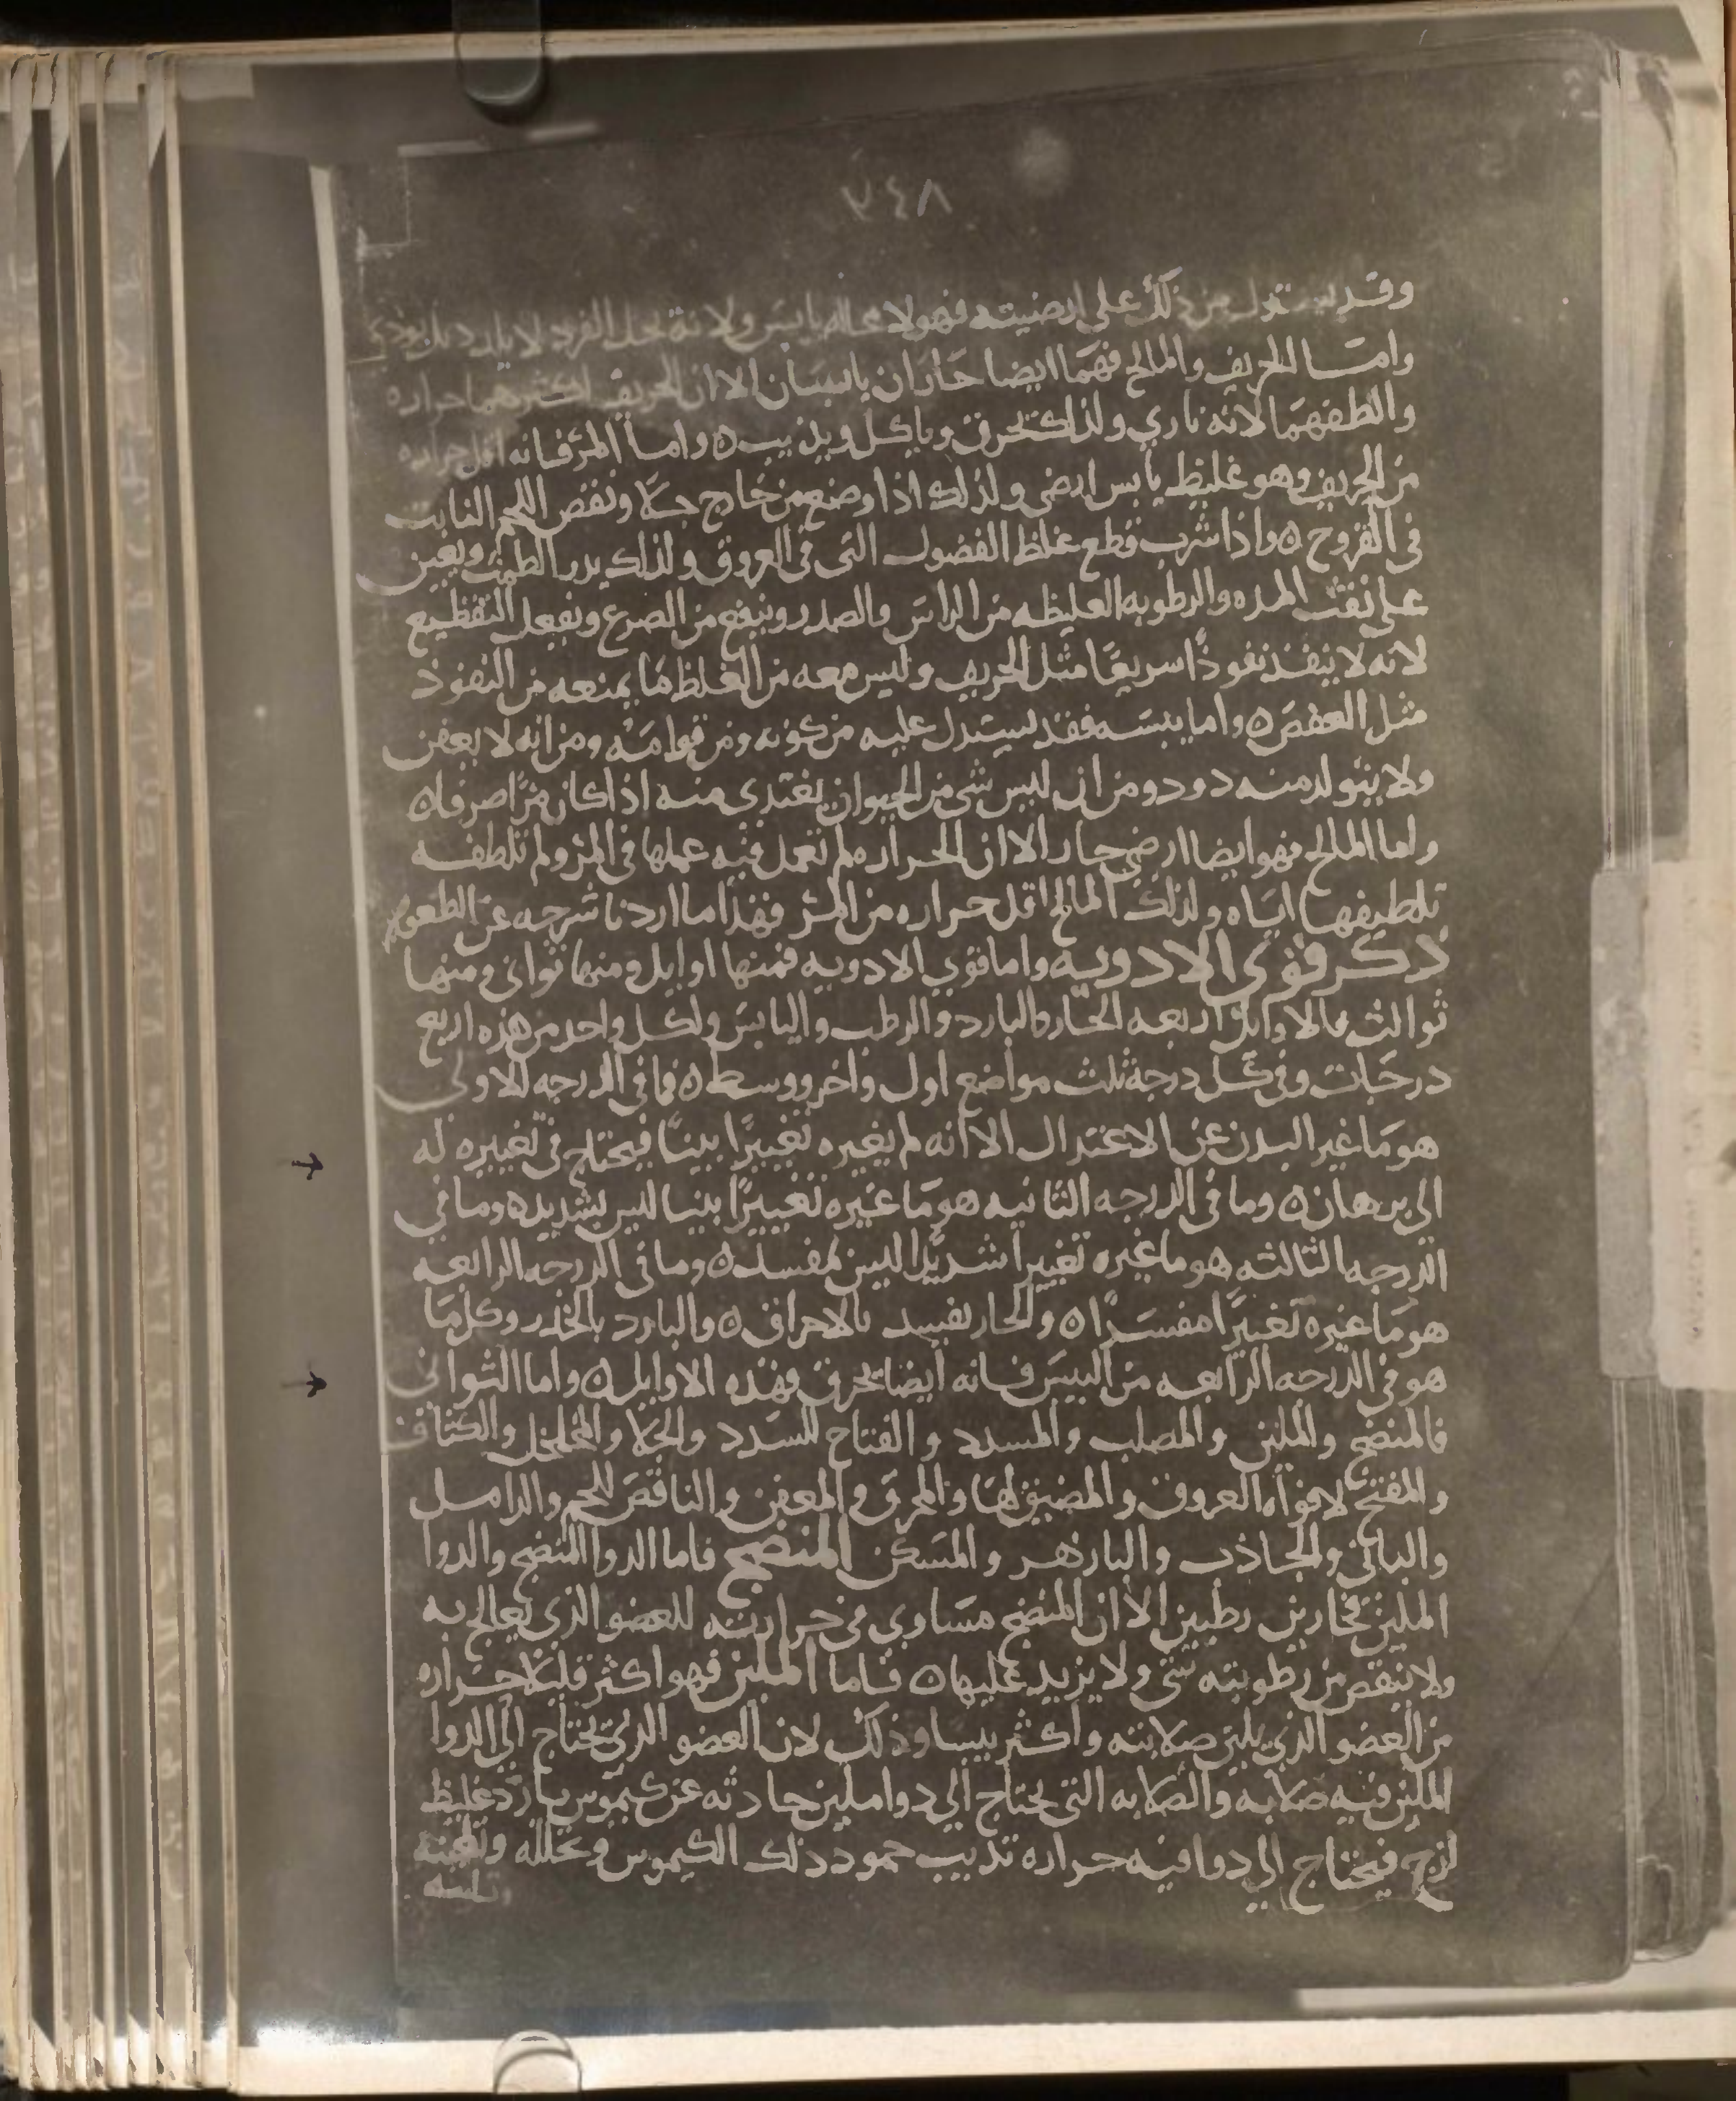 ٢٤٨
وقد يستدل من ذلك على ارضيته فهو لا محاله يابس ولانه
وامـا الحريف والمالح فهما ايضا حاران يابسان الا ان الحريف اكثرهما حراره
والطفهما لانه ناري ولذلك يحرق وياكل ويذيب ه واما المر فانه اقل حراره
من الحريف وهو غليظ يابس ارضى ولذلك اذا وضع من خارج جلا ونقص اللحم النابت
فى القروح ه واذا شرب قطع غلظ الفضول التى فى العروق ولذلك يدر الطمث ويعين
على نفث المده والرطوبه الغليظه من الراس والصدر وينفع من الصرع ويفعل التقطيع
لانه لا ينفذ نفوذًا سريعًا مثل الحريف وليس معه من الغلظ ما يمنعه من النفوذ
مثل العفص ه واما يبسه فقد يستدل عليه من كونه ومن قوامه ومن انه لا يعفن
ولا يتولد منه دود ومن ان ليس شى من الحيوان يغتدى منه اذا كان مرًا صرفا ه
واما المالح فهو ايضا ارضى حار الا ان الحراره لم تعمل فيه عملها فى المر ولم تلطفـه
تلطيفها اياه ولذلك المالح اقل حراره من المر فهذا ما اردنا شرحه عن الطعوم
ذكر قوى الادوية واما قوى الادويه فمنها اوايل ومنها ثوانى ومنها
ثوالث فالاوايل اربعه الحار والبارد والرطب واليابس ولكل واحد من هذه اربع
درجات وفى كل درجة ثلث مواضع اول واخر ووسط ه فما فى الدرجه الاولى
هو ما غير البدن عن الاعتدال الا انه لم يغيره تغييرًا بينًا فيحتاج فى تغييره له
الى برهان ه وما فى الدرجه الثانيه هو ما غيره تغييرًا بينا ليس بشديد ه وما فى
الدرجه الثالثه هو ما غيره تغييرا شديدًا ليس بمفسد ه وما فى الدرجه الرابعه
هو ما غيره تغييرًا مفسدًا ه والحار يفسد بالاحراق ه والبارد بالخدر وكل ما
هو فى الدرجه الرابعه من اليبس فانه ايضا يحرق فهذه الاوايل ه واما الثوانى
فالمنضج والملين والمصلب والمسدد والفتاح للسدد والجلا والمخلخل والكثاف
والمفتح لافواه العروق والمضيق لها والمحرق والمعفن والناقص للحم والدامـل
والبانى والجاذب والبازهر والمسكن المنضج فاما الدوا المنضج والدوا
الملين فحارين رطبين الا ان المنضج مساوى فى حرارته للعضو الذى يعالج به
ولا ينقص من رطوبته شى ولا يزيد عليها ه فاما الملين فهو اكثر قليلا حراره
من العضو الذى يلين صلابته واكثر يبسا وذلك لان العضو الذى يحتاج الى الدوا
الملين فيه صلابه والصلابه التى يحتاج الى دوا ملين حادثه عن كيموس بارد غليظ
لزج فيحتاج الى دوا فيه حراره تذيب جمود ذلك الكيموس وتحلله
تلينه